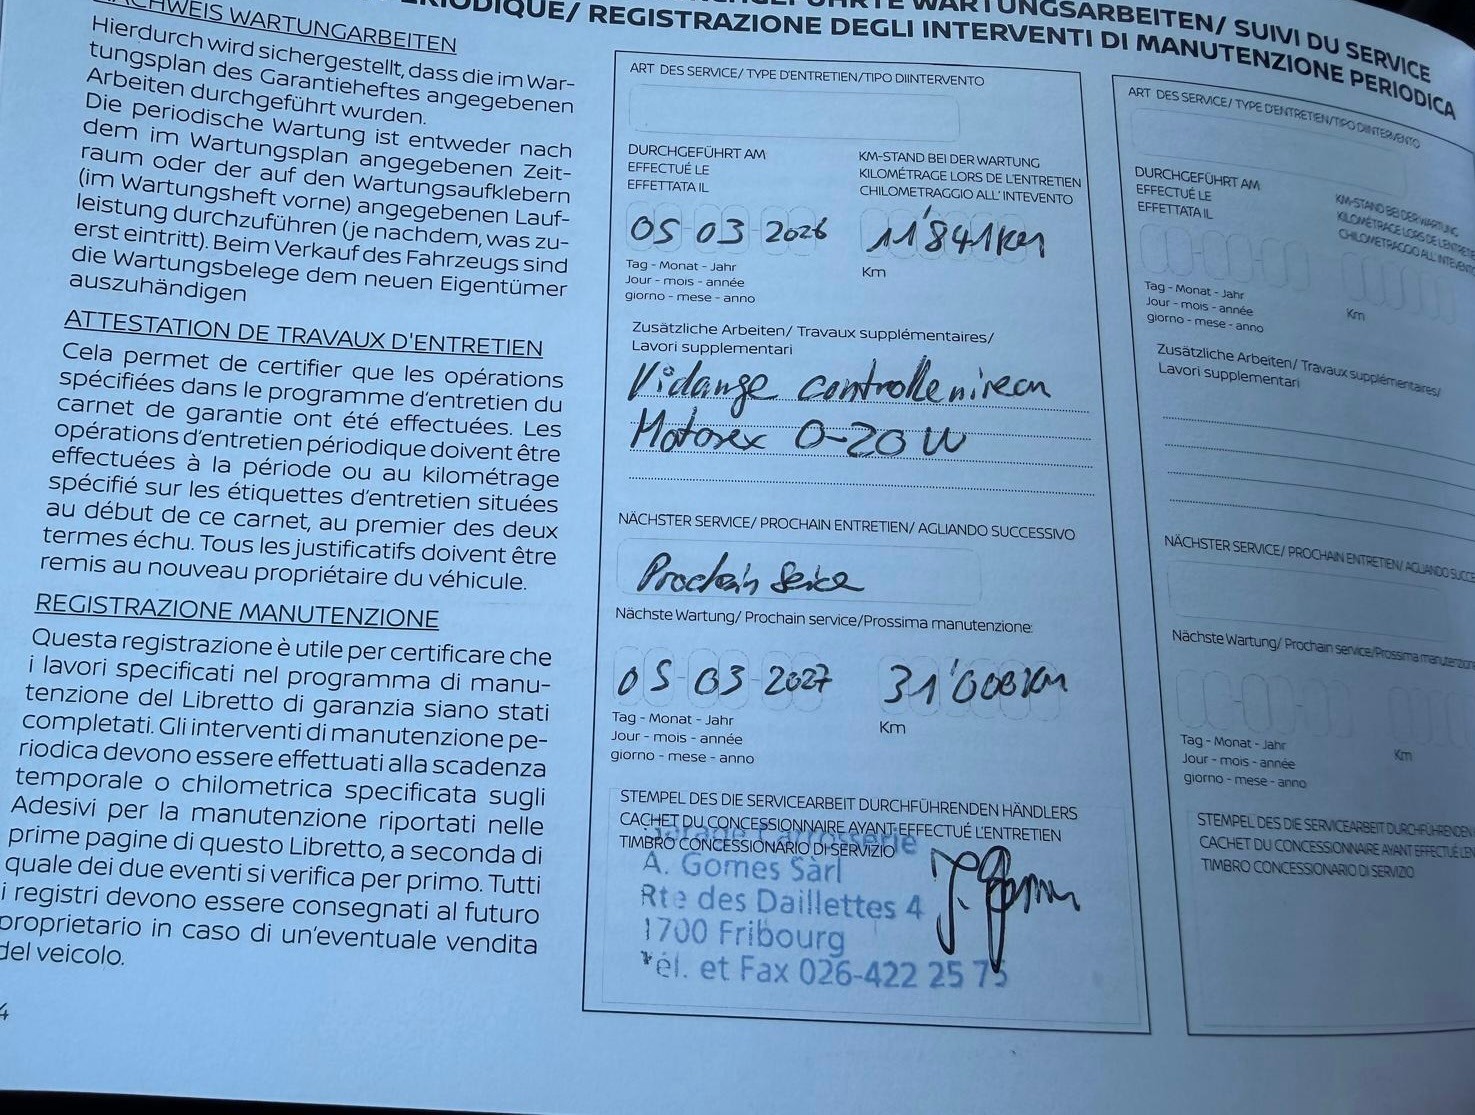 NACHWEIS WARTUNGARBEITEN
Hierdurch wird sichergestellt, dass die im War-
tungsplan des Garantieheftes angegebenen
Arbeiten durchgeführt wurden.
Die periodische Wartung ist entweder nach
dem im Wartungsplan angegebenen Zeit-
raum oder der auf den Wartungsaufklebern
(im Wartungsheft vorne) angegebenen Lauf-
leistung durchzuführen (je nachdem, was zu-
erst eintritt). Beim Verkauf des Fahrzeugs sind
die Wartungsbelege dem neuen Eigentümer
auszuhändigen
ATTESTATION DE TRAVAUX D'ENTRETIEN
Cela permet de certifier que les opérations
spécifiées dans le programme d'entretien du
carnet de garantie ont été effectuées. Les
opérations d'entretien périodique doivent être
effectuées à la période ou au kilométrage
spécifié sur les étiquettes d'entretien situées
au début de ce carnet, au premier des deux
termes échu. Tous les justificatifs doivent être
remis au nouveau propriétaire du véhicule.
REGISTRAZIONE MANUTENZIONE
Questa registrazione è utile per certificare che
i lavori specificati nel programma di manu-
tenzione del Libretto di garanzia siano stati
completati. Gli interventi di manutenzione pe-
riodica devono essere effettuati alla scadenza
temporale o chilometrica specificata sugli
Adesivi per la manutenzione riportati nelle
prime pagine di questo Libretto, a seconda di
quale dei due eventi si verifica per primo. Tutti
i registri devono essere consegnati al futuro
proprietario in caso di un'eventuale vendita
del veicolo.
4
WARTUNGSARBEITEN/ SUIVI DU SERVICE
PÉRIODIQUE/ REGISTRAZIONE DEGLI INTERVENTI DI MANUTENZIONE PERIODICA
ART DES SERVICE/ TYPE D'ENTRETIEN/TIPO DIINTERVENTO
DURCHGEFÜHRT AM
EFFECTUÉ LE
EFFETTATA IL
KM-STAND BEI DER WARTUNG
KILOMÉTRAGE LORS DE L'ENTRETIEN
CHILOMETRAGGIO ALL' INTEVENTO
05 03 2026 11'841KM
Tag - Monat - Jahr
Jour - mois - année
giorno - mese - anno
Km
Zusätzliche Arbeiten/ Travaux supplémentaires/
Lavori supplementari
Vidange controlle
Motorex 0-20W
NÄCHSTER SERVICE/ PROCHAIN ENTRETIEN/ AGLIANDO SUCCESSIVO
Prochain
Nächste Wartung/ Prochain service/Prossima manutenzione:
05 03 2027 31'000KM
Tag - Monat - Jahr
Jour - mois - année
giorno - mese - anno
Km
STEMPEL DES DIE SERVICEARBEIT DURCHFÜHRENDEN HÄNDLERS
CACHET DU CONCESSIONNAIRE AYANT EFFECTUÉ L'ENTRETIEN
TIMBRO CONCESSIONARIO DI SERVIZIO
Garage Carrosserie
A. Gomes Sàrl
Rte des Daillettes 4
1700 Fribourg
Tél. et Fax 026-422 25 75
ART DES SERVICE/ TYPE D'ENTRETIEN/TIPO DIINTERVENTO
DURCHGEFÜHRT AM
EFFECTUÉ LE
EFFETTATA IL
KM-STAND BEI DER WARTUNG
KILOMÉTRAGE LORS DE L'ENTRETIE
CHILOMETRAGGIO ALL' INTEVENTO
Tag - Monat - Jahr
Jour - mois - année
giorno - mese - anno
Km
Zusätzliche Arbeiten/ Travaux supplémentaires/
Lavori supplementari
NÄCHSTER SERVICE/ PROCHAIN ENTRETIEN/ AGLIANDO SUCCE
Nächste Wartung/ Prochain service/Prossima manutenzion
Tag - Monat - Jahr
Jour - mois - année
giorno - mese - anno
Km
STEMPEL DES DIE SERVICEARBEIT DURCHFÜHRENDEN
CACHET DU CONCESSIONNAIRE AYANT EFFECTUÉ L'EN
TIMBRO CONCESSIONARIO DI SERVIZIO